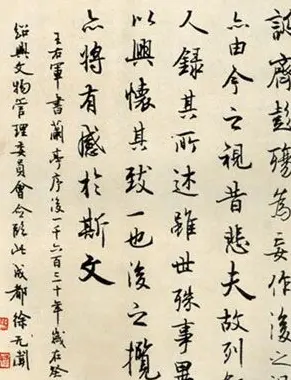 誕齊彭殤為妄作後
亦由今之視昔悲夫故列
人錄其所述雖世殊事異
以興懷其致一也後之攬
亦將有感於斯文
王右軍書蘭亭序後千六百三十年歲在癸
紹興文物管理委員會令臨此成都徐无聞